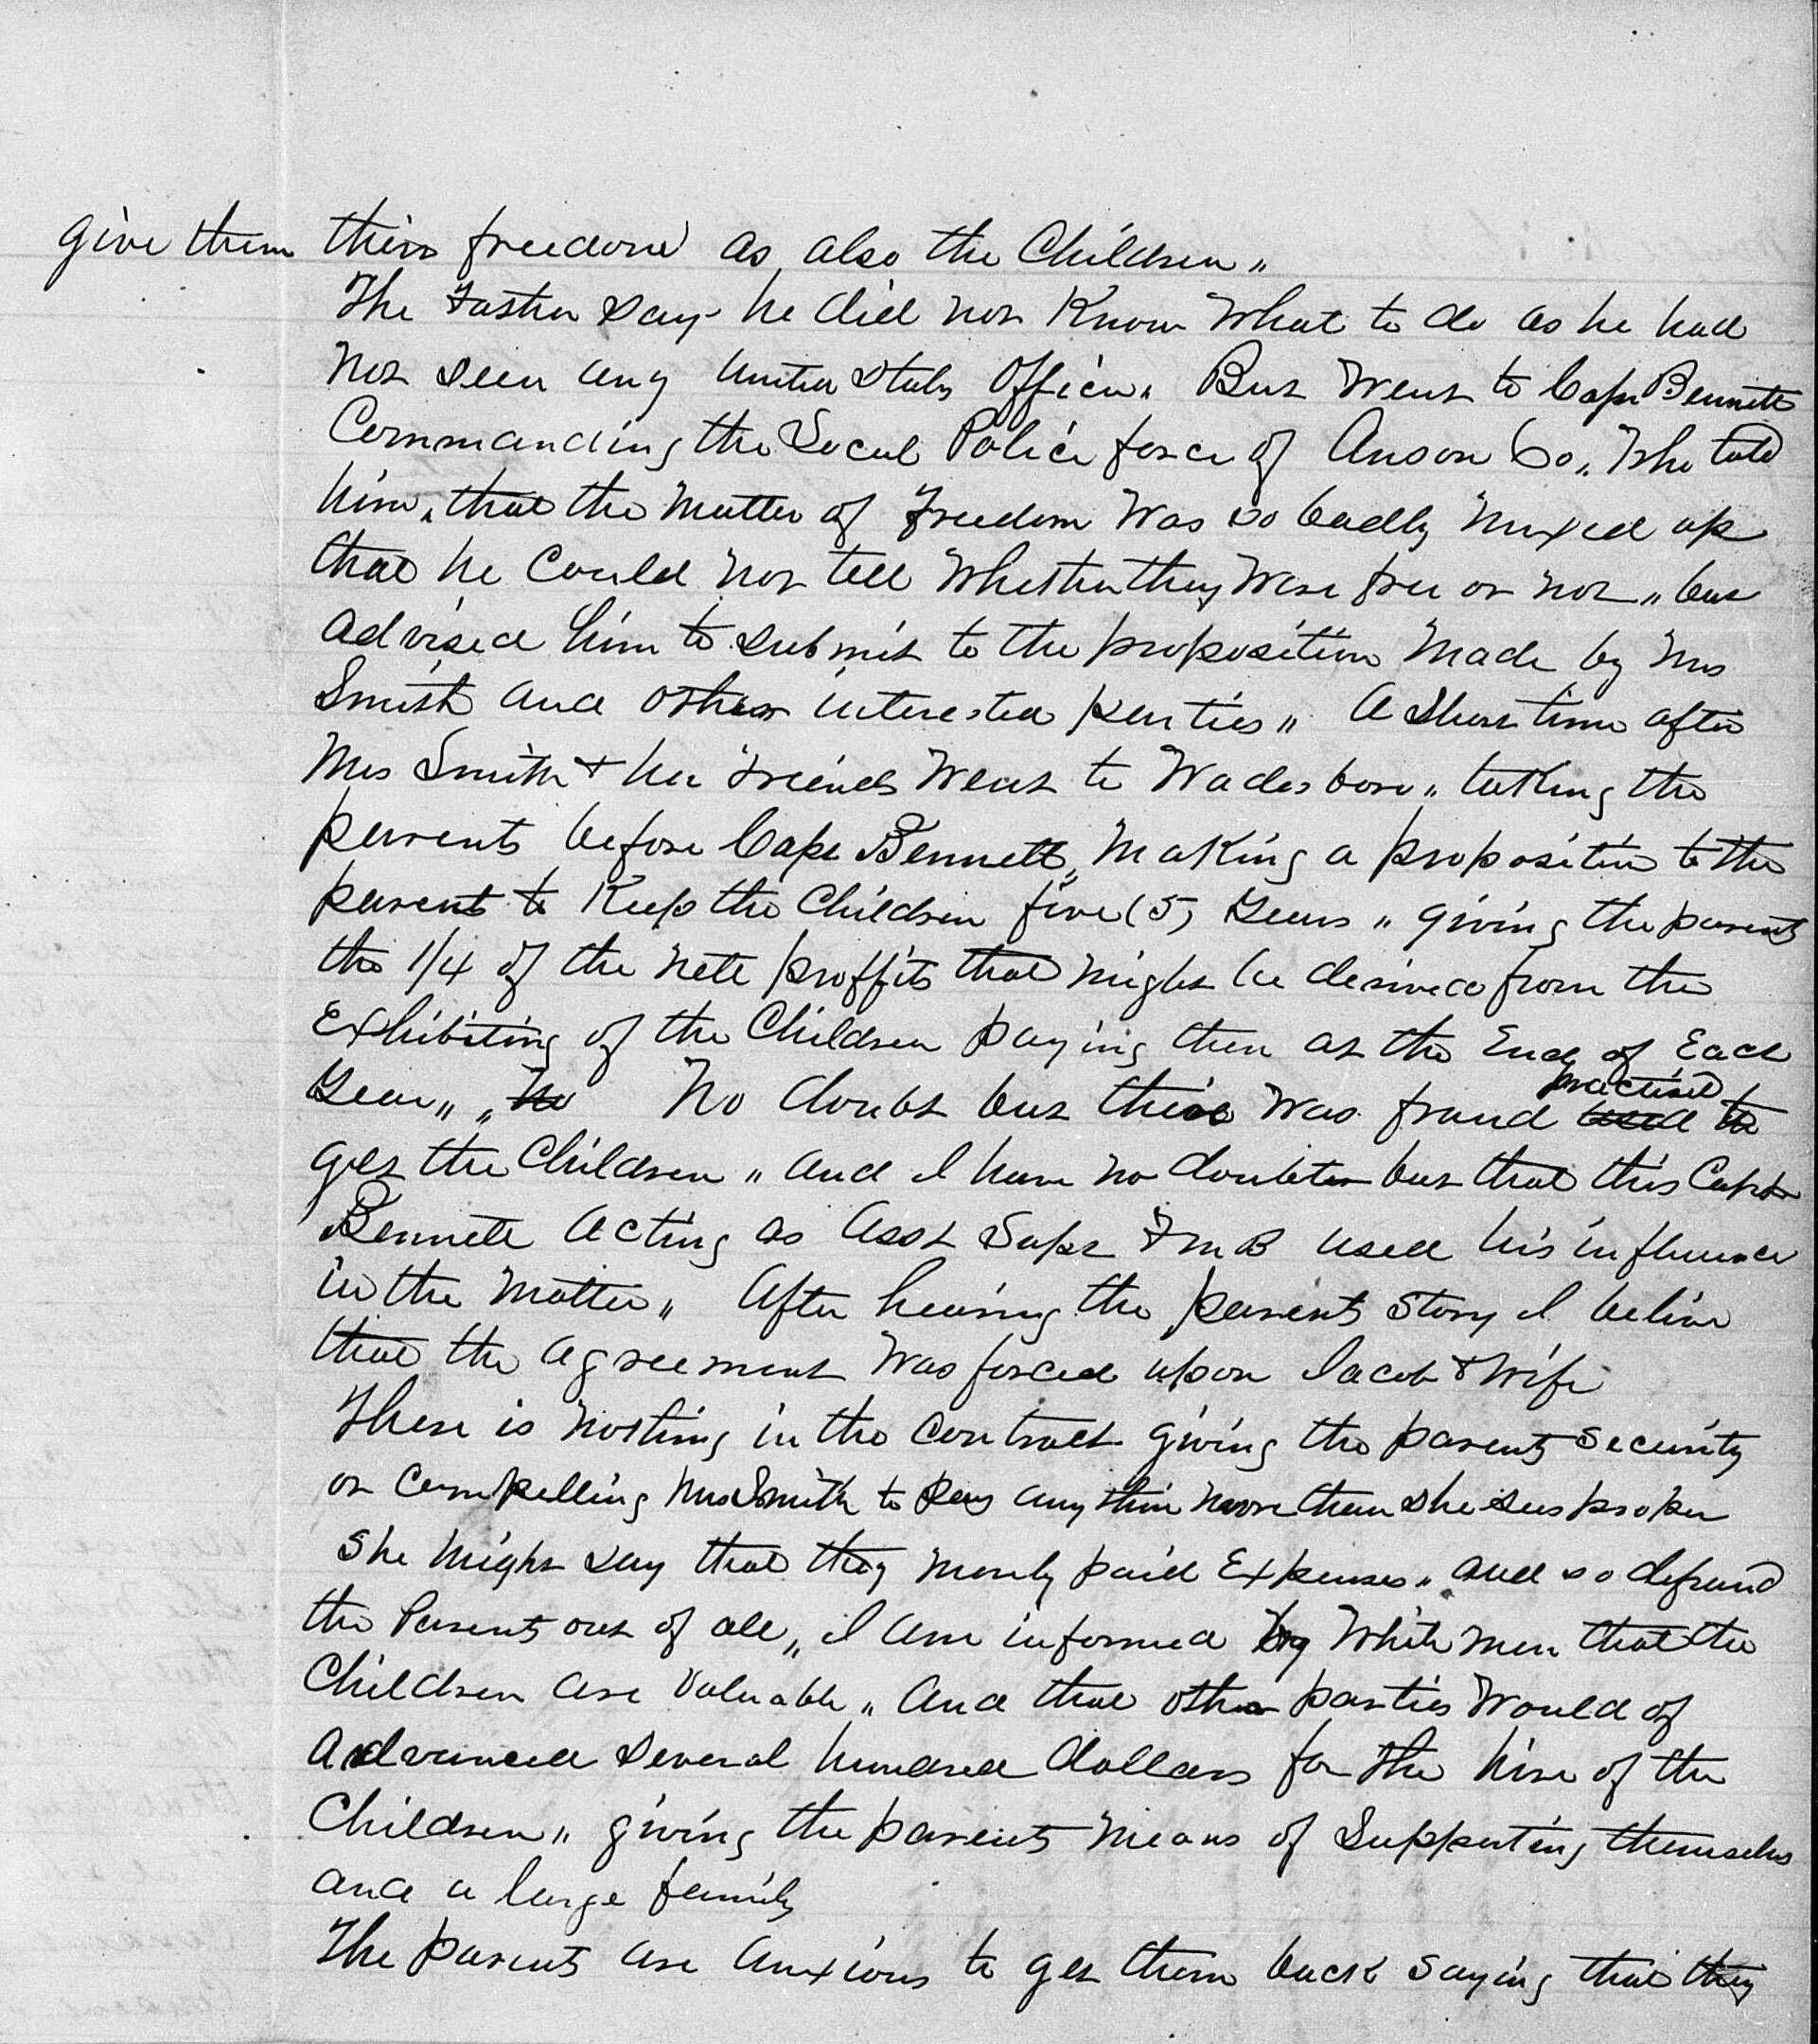 give them their freedom as also the Children "
The Father says he did not Know What to do as he had
not seen any United States Officer " But Went to Capt Bennett
Commanding the Local Police force of Anson Co " Who told
him " that the Matter of Freedom Was so badly mixed up
that he Could not tell Whether they Were free or not " but
advised him to submit to the proposition Made by Mrs
Smith and other interested parties " A Short time after
Mrs Smith & her Friends Went to Wadesboro " taking the
parents before Capt Bennett " Making a proposition to the
parents to Keep the Children five (5) Years " giving the parents
the 1/4 of the nett proffits that might be derived from the
Exhibiting of the Children paying them at the End of Each
Year " " No No doubt but there was fraud used practised to
get the Children " and I have no doubts but that this Capt
Bennett acting as Asst Supt F M B used his influence
in the Matter " After hearing the parents Story I believe
that the agreement Was forced upon Jacob & Wife
There is nothing in the Contract giving the parents security
or Compelling Mrs Smith to pay any thin more than she sees proper
She might say that they merely paid Expenses " and so defraud
the Parents out of all " I am informed by White men that the
Children are Valuable " And that other parties Would of
advanced several hundred dollars for the hire of the
Children " giving the parents Means of Supporting themselves
and a large family
The parents are anxious to get them back saying that they